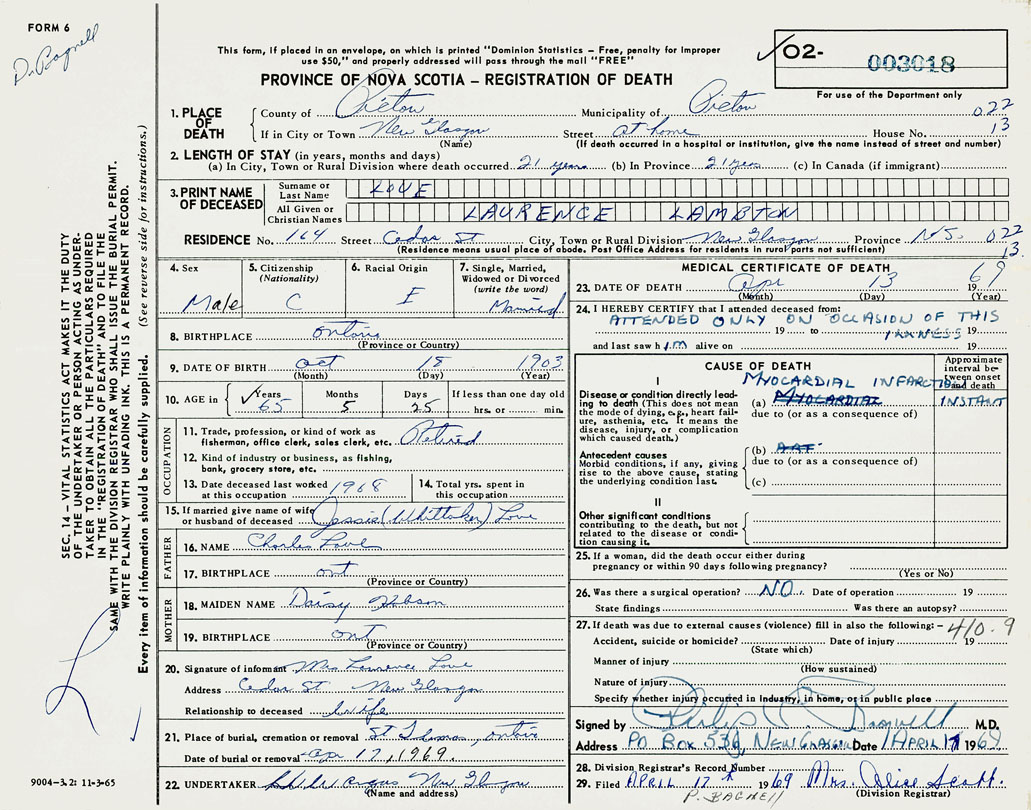 FORM 6
D. Bagnell
This form, if placed in an envelope, on which is printed "Dominion Statistics – Free, penalty for improper
use $50," and properly addressed will pass through the mail "FREE"
PROVINCE OF NOVA SCOTIA – REGISTRATION OF DEATH
O2- 003018
For use of the Department only
1. PLACE OF DEATH
County of Pictou Municipality of Pictou 022
If in City or Town New Glasgow Street at home House No. 13
(Name) (If death occurred in a hospital or institution, give the name instead of street and number)
2. LENGTH OF STAY (in years, months and days)
(a) In City, Town or Rural Division where death occurred 21 years (b) In Province 21 yrs (c) In Canada (if immigrant)
3. PRINT NAME OF DECEASED
Surname or Last Name LOVE
All Given or Christian Names LAURENCE LAMBTON
RESIDENCE No. 164 Street Cedar St City, Town or Rural Division New Glasgow Province N.S. 022
(Residence means usual place of abode. Post Office Address for residents in rural parts not sufficient) 13.
4. Sex Male
5. Citizenship (Nationality) C
6. Racial Origin E
7. Single, Married, Widowed or Divorced (write the word) Married
8. BIRTHPLACE Ontario
(Province or Country)
9. DATE OF BIRTH Oct 18 1903
(Month) (Day) (Year)
10. AGE in Years 65 Months 5 Days 25 If less than one day old hrs. or min.
OCCUPATION
11. Trade, profession, or kind of work as fisherman, office clerk, sales clerk, etc. Retired
12. Kind of industry or business, as fishing, bank, grocery store, etc.
13. Date deceased last worked at this occupation 1968
14. Total yrs. spent in this occupation
15. If married give name of wife or husband of deceased Jessie (Whittaker) Love
FATHER
16. NAME Charles Love
17. BIRTHPLACE Ont
(Province or Country)
MOTHER
18. MAIDEN NAME Daisy Hobson
19. BIRTHPLACE Ont
(Province or Country)
20. Signature of informant Mrs Laurence Love
Address Cedar St New Glasgow
Relationship to deceased Wife
21. Place of burial, cremation or removal St Thomas, Ontario
Date of burial or removal Apr 17, 1969.
22. UNDERTAKER New Glasgow
(Name and address)
MEDICAL CERTIFICATE OF DEATH
23. DATE OF DEATH Apr 13 1969
(Month) (Day) (Year)
24. I HEREBY CERTIFY that I attended deceased from:
ATTENDED ONLY ON OCCASION OF THIS
19 to ILLNESS 19
and last saw him alive on 19
CAUSE OF DEATH
Approximate interval between onset and death
I
MYOCARDIAL INFARCTION
Disease or condition directly leading to death (This does not mean the mode of dying, e.g., heart failure, asthenia, etc. It means the disease, injury, or complication which caused death.)
(a) MYOCARDIAL INSTANT
due to (or as a consequence of)
Antecedent causes
Morbid conditions, if any, giving rise to the above cause, stating the underlying condition last.
(b)
due to (or as a consequence of)
(c)
II
Other significant conditions contributing to the death, but not related to the disease or condition causing it.
25. If a woman, did the death occur either during pregnancy or within 90 days following pregnancy?
(Yes or No)
26. Was there a surgical operation? NO. Date of operation 19
State findings Was there an autopsy?
27. If death was due to external causes (violence) fill in also the following: – 410.9
Accident, suicide or homicide? Date of injury 19
(State which)
Manner of injury
(How sustained)
Nature of injury
Specify whether injury occurred in industry, in home, or in public place
Signed by Philip Bagnell M.D.
Address PO BOX 536, NEW GLASGOW Date April 17 1969
28. Division Registrar's Record Number
29. Filed APRIL 17th 1969 Mrs. Alice Scott.
P. BAGNELL (Division Registrar)
SEC. 14 – VITAL STATISTICS ACT MAKES IT THE DUTY
OF THE UNDERTAKER OR PERSON ACTING AS UNDER-
TAKER TO OBTAIN ALL THE PARTICULARS REQUIRED
IN THE "REGISTRATION OF DEATH" AND TO FILE THE
SAME WITH THE DIVISION REGISTRAR WHO SHALL ISSUE THE BURIAL PERMIT.
WRITE PLAINLY WITH UNFADING INK. THIS IS A PERMANENT RECORD.
Every item of information should be carefully supplied. (See reverse side for instructions.)
9004-3.2: 11-3-65